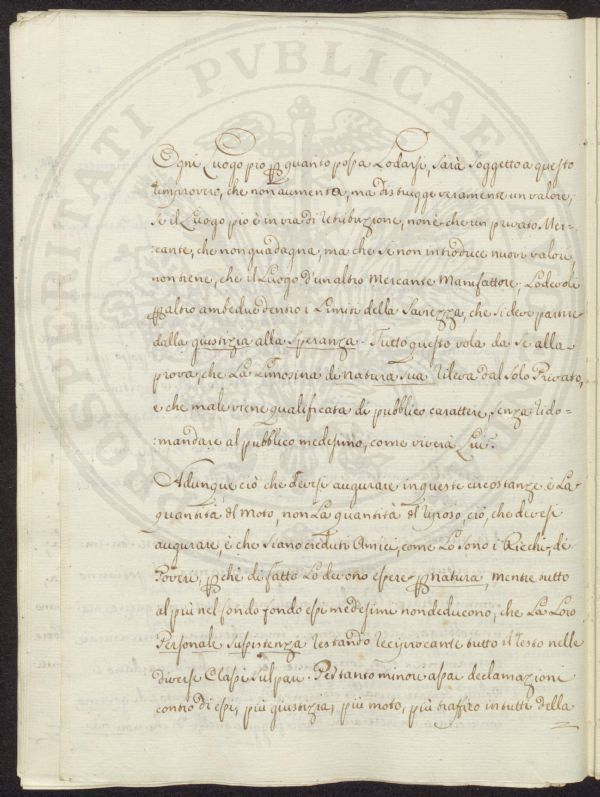 Ogni Luogo pio per quanto possa Lodarsi, sarà soggetto a questo
improvero, che non aumenta, ma distrugge veramente un valore,
se il Luogo pio è in via di retribuzione, non è che un privato Mer-
:cante, che non guadagna, ma che se non introduce nuovi valori
non tiene, che il Luogo d'un altro Mercante Manifattore. Lodevoli
per altro ambedue denno i Limiti della Saviezza, che si deve partire
dalla giustizia alla Speranza. Tutto questo vola da se alla
prova, che La Limosina di Natura Sua rileva dal Solo Privato,
e che male viene qualificata di pubblico carattere, senza rido-
:mandare al pubblico medesimo, come viverà Lui.
Adunque ciò che devesi augurare in queste circostanze è La
quantità del Moto, non La quantità del riposo, ciò, che devesi
augurare, è che siano creduti Amici, come Lo sono i Ricchi, de'
Poveri, perchè di fatto Lo devono essere per natura, mentre tutto
al più nel fondo fondo essi medesimi non deducono, che La Loro
Personale Sussistenza restando reciprocante tutto il resto nelle
diverse Classi sul pau. Pertanto minore assa declamazione
contro di essi, più giustizia, più moto, più traffico in tutti della
PROSPERITATI PVBLICAE